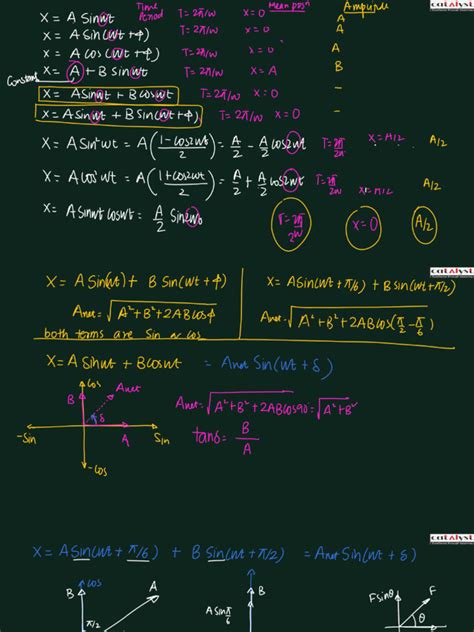 Time Period Mean posn Amplitude
catalyst
X = A Sinωt T = 2π/ω x = 0 A
X = A Sin(ωt + φ) T = 2π/ω x = 0 A
X = A cos(ωt + φ) T = 2π/ω x = 0 A
Constant
X = A + B Sinωt T = 2π/ω x = A B
X = A Sinωt + B Cosωt T = 2π/ω x = 0 -
X = A Sinωt + B Sin(ωt + φ) T = 2π/ω x = 0 -
X = A Sin²ωt = A(1-cos2ωt/2) = A/2 - A/2 cos2ωt T = 2π/2ω x = A/2 A/2
X = A Cos²ωt = A(1+cos2ωt/2) = A/2 + A/2 cos2ωt T = 2π/2ω x = A/2 A/2
X = A Sinωt cosωt = A/2 Sin2ωt T = 2π/2ω x = 0 A/2
catalyst
X = A Sin(ωt) + B Sin(ωt + φ)
Anet = √A² + B² + 2ABcosφ
both terms are Sin or cos
X = A Sin(ωt + π/6) + B Sin(ωt + π/2)
Anet = √A² + B² + 2ABcos(π/2 - π/6)
X = A Sinωt + B cosωt = Anet Sin(ωt + δ)
cos
B Anet
δ
-Sin A Sin
-cos
Anet = √A² + B² + 2ABcos90 = √A² + B²
tanδ = B/A
catalyst
X = A Sin(ωt + π/6) + B Sin(ωt + π/2) = Anet Sin(ωt + δ)
cos
B A
π/2
B
A Sin π/6
F Sinθ F
θ